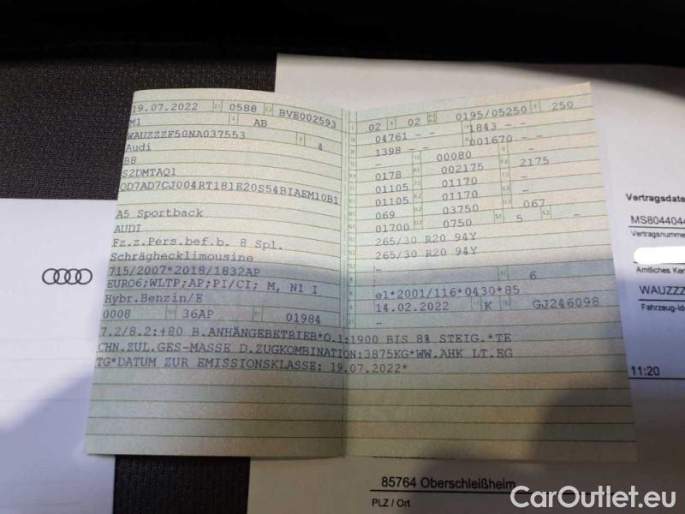 19.07.2022 0588 BVB002593
M1 AB
WAUZZZF50NA037553 4
Audi
B8
S2DMTAQ1
QD7AD7CJ004RT181E20S54BIAEM10B1
A5 Sportback
AUDI
Fz.z.Pers.bef.b. 8 Spl.
Schräghecklimousine
715/2007*2018/1832AP
EURO6;WLTP;AP;PI/CI; M, N1 I
Hybr.Benzin/E
0008 36AP 01984
02 02 0195/05250 250
04761 - - 1843 - -
1398 - - 001670 - -
- 00080 -
0178 002175 2175
01105 01170 -
01105 01170 -
069 03750 067
01700 0750 5 -
265/30 R20 94Y
265/30 R20 94Y
-
- 6
e1*2001/116*0430*85
14.02.2022 K GJ246098
7.2/8.2:+80 B.ANHÄNGEBETRIEB*O.1:1900 BIS 8% STEIG.*TE
CHN.ZUL.GES-MASSE D.ZUGKOMBINATION:3875KG*WW.AHK LT.EG
TG*DATUM ZUR EMISSIONSKLASSE: 19.07.2022*
Vertragsdate
MS8044044
Vertragsnumme
Amtliches Ken
WAUZZZ
Fahrzeug-Id
11:20
85764 Oberschleißheim
PLZ / Ort
CarOutlet.eu